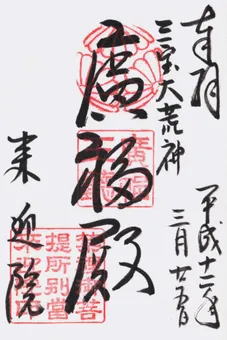 奉拝
三宝大荒神
平成十二年
三月廿五日
廣福殿
来迎院
菩
提所別堂